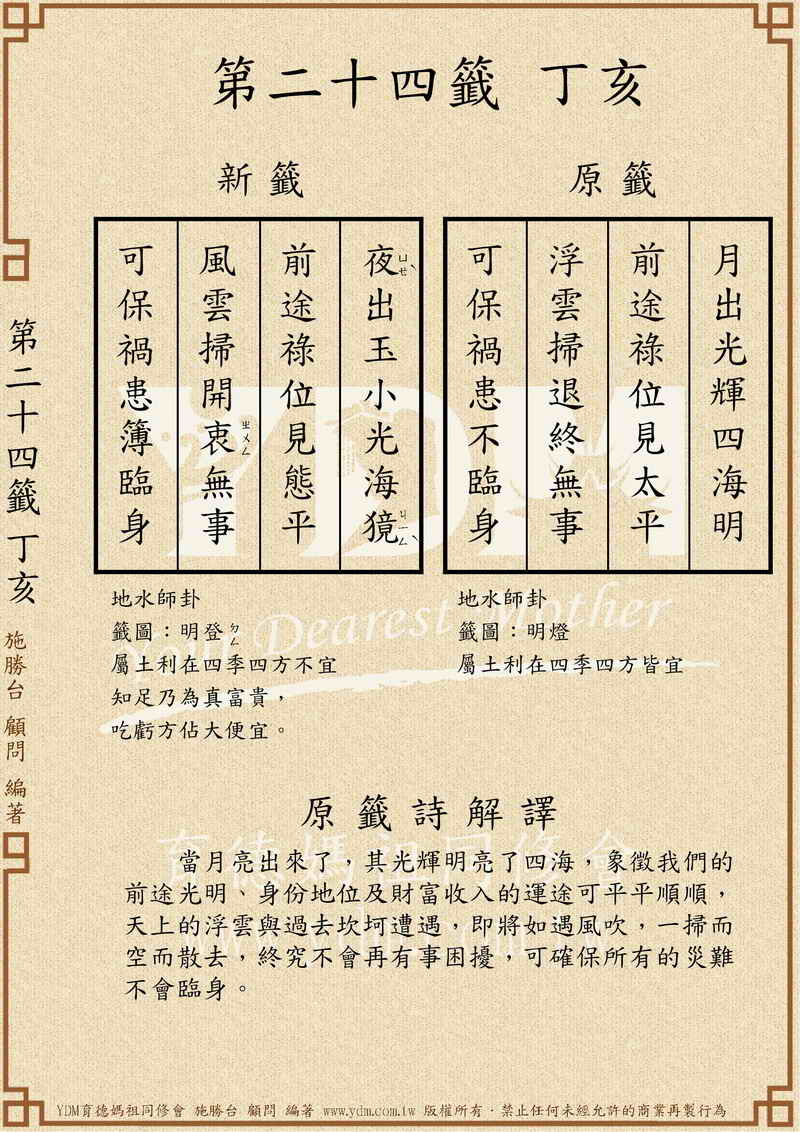 第二十四籤 丁亥
原籤
月出光輝四海明
前途祿位見太平
浮雲掃退終無事
可保禍患不臨身
地水師卦
籤圖：明燈
屬土利在四季四方皆宜
新籤
夜ㄩㄝˋ出玉小光海獍ㄐㄧㄥˋ
前途祿位見態平
風雲掃開衷ㄓㄨㄥ無事
可保禍患簿臨身
地水師卦
籤圖：明登ㄉㄥ
屬土利在四季四方不宜
知足乃為真富貴，
吃虧方佔大便宜。
原籤詩解譯
當月亮出來了，其光輝明亮了四海，象徵我們的
前途光明、身份地位及財富收入的運途可平平順順，
天上的浮雲與過去坎坷遭遇，即將如遇風吹，一掃而
空而散去，終究不會再有事困擾，可確保所有的災難
不會臨身。
第二十四籤 丁亥
施勝台 顧問 編著
YDM
Your Dearest Mother
育德媽祖同修會
YDM育德媽祖同修會 施勝台 顧問 編著 www.ydm.com.tw 版權所有‧禁止任何未經允許的商業再製行為